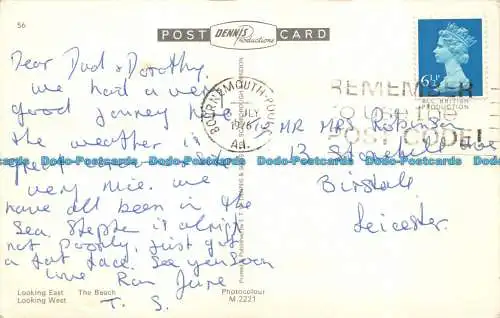 56
POST DENNIS Productions CARD
Dear Dad & Dorothy.
We had a very
good jorney here
the weather is
great here
very nice. we
have all been in the
Sea. Stephen is alright
not Poorly, just got
a fat face. See you soon
love Ron June
T. S.
Looking East The Beach
Looking West
Photocolour
M.2221
BOURNEMOUTH-POOLE
JLY
1976
A
REMEMBER
TO USE THE
POST CODE!
6½P
ALL BRITISH
PRODUCTION
TO MR MRS Robinson
13 Stonehill Ave
Birstall
Leicester.
Dodo-Postcards Dodo-Postcards Dodo-Postcards